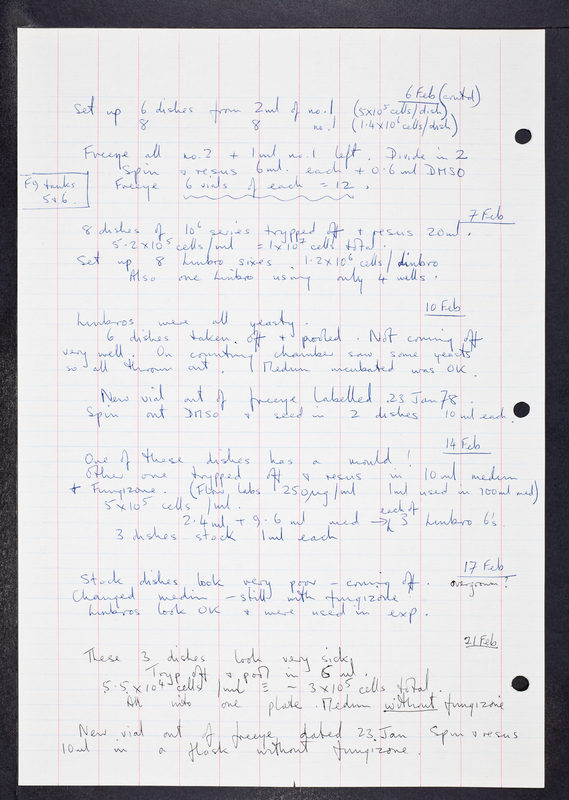 6 Feb (contd)
Set up 6 dishes from 2ml of no.1 (5x10⁵ cells/dish)
8 8 no.1 (1.4x10⁶ cells/dish)
Freeze all no.2 + 1ml no.1 left. Divide in 2
Spin & resus 6ml each + 0.6 ml DMSO
F9 tanks
5 & 6.
Freeze 6 vials of each = 12.
7 Feb
8 dishes of 10⁶ series trypped off & resus 20ml.
5.2x10⁵ cells/ml = 1x10⁷ cells total.
Set up 8 limbro sixes 1.2x10⁶ cells/limbro
Also one limbro using only 4 wells.
10 Feb
Limbros were all yeasty.
6 dishes taken off & pooled. Not coming off
very well. On counting chamber saw some yeasts
so all thrown out. Medium incubated was OK.
New vial out of freeze labelled 23 Jan 78.
Spin out DMSO & seed in 2 dishes 10 ml each.
14 Feb
One of these dishes has a mould!
Other one trypped off & resus in 10 ml medium
+ Fungizone. (Flow Labs 250µg/ml 1ml used in 100ml med)
5x10⁵ cells/ml.
2.4 ml + 9.6 ml med → each of 3 limbro 6's.
3 dishes stock 1ml each
17 Feb
Stock dishes look very poor – coming off. overgrown?
Changed medium – still with fungizone
Limbros look OK & were used in exp.
21 Feb
These 3 dishes look very sick,
Tryp off & pool in 6 ml.
5.5x10⁴ cells/ml ≡ ~ 3x10⁵ cells total.
All into one plate. Medium without fungizone
New vial out of freeze dated 23 Jan Spin & resus
10ml in a flask without fungizone.